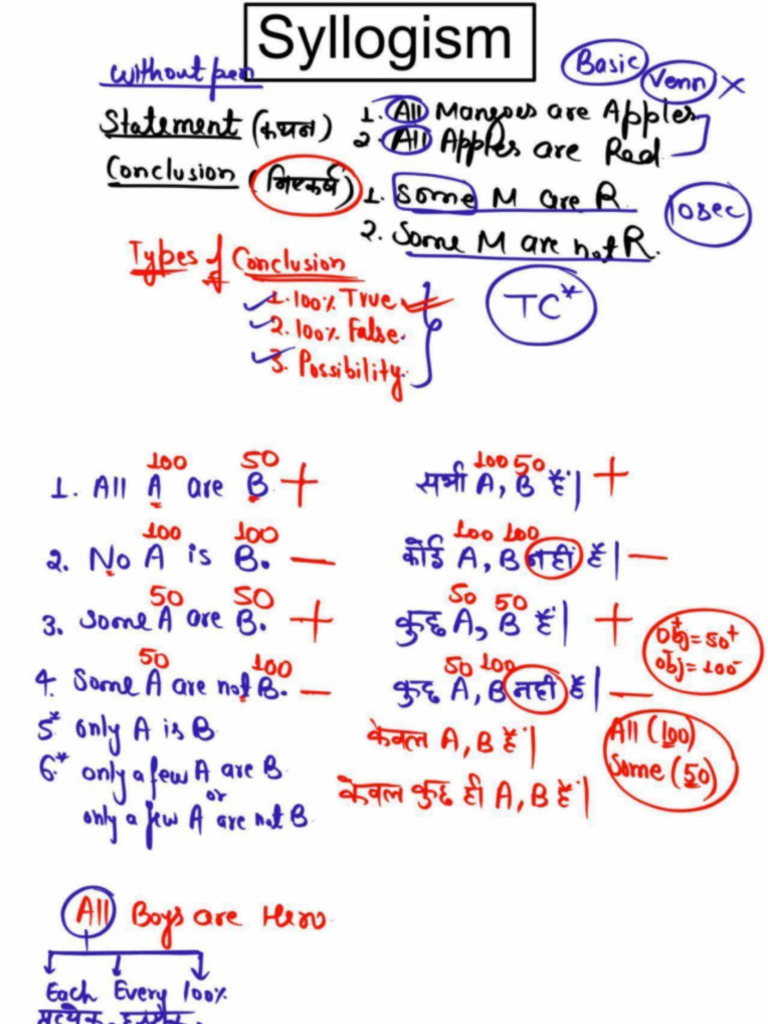 Syllogism
Without pen
Basic
Venn X
Statement (कथन)
1. All Mangoes are Apples
2. All Apples are Red
Conclusion (निष्कर्ष)
1. Some M are R
2. Some M are not R.
10sec
Types of Conclusion
1. 100% True
2. 100% False.
3. Possibility.
TC*
100 50
1. All A are B +
100 50
सभी A, B हैं| +
100 100
2. No A is B. —
100 100
कोई A, B नहीं है| —
50 50
3. Some A are B. +
50 50
कुछ A, B हैं| +
50 100
4. Some A are not B. —
50 100
कुछ A, B नहीं हैं| —
Obj+ = 50+
Obj- = 100-
5* only A is B
केवल A, B हैं|
6.* only a few A are B
or
only a few A are not B
केवल कुछ ही A, B हैं|
All (100)
Some (50)
All Boys are Hero
Each Every 100%
प्रत्येक